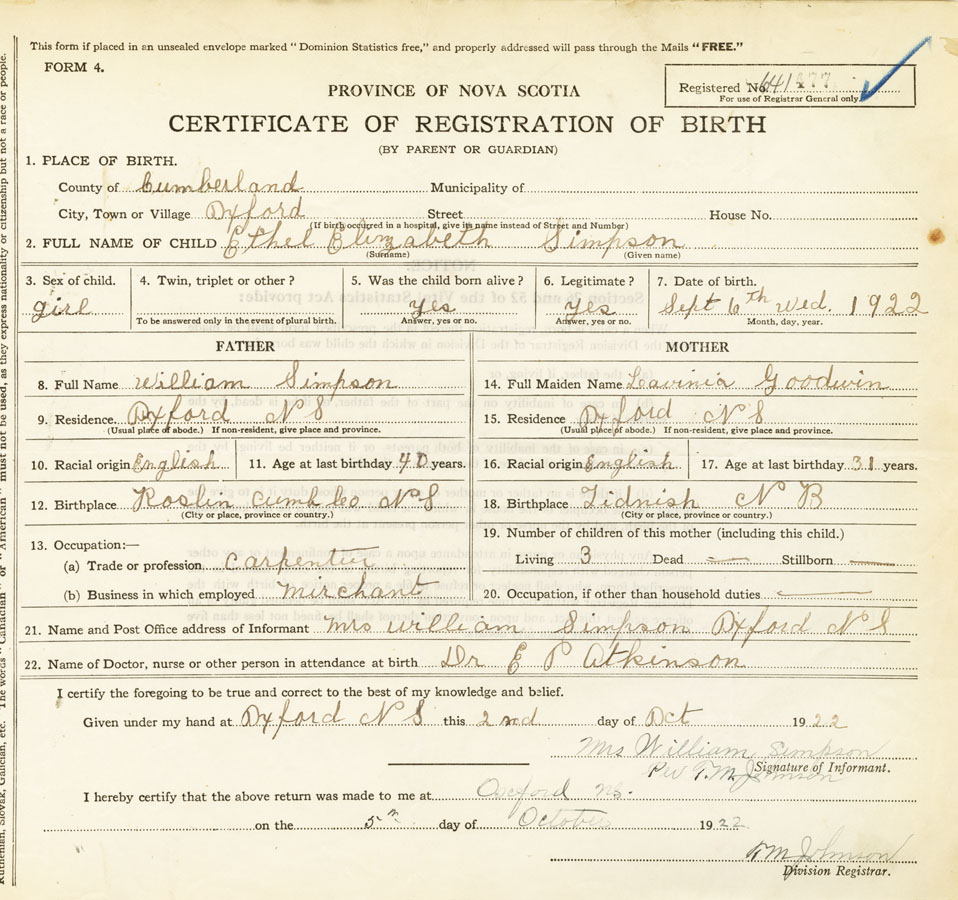 This form if placed in an unsealed envelope marked "Dominion Statistics free," and properly addressed will pass through the Mails "FREE."
FORM 4.
Registered No. 641477
For use of Registrar General only
PROVINCE OF NOVA SCOTIA
CERTIFICATE OF REGISTRATION OF BIRTH
(BY PARENT OR GUARDIAN)
1. PLACE OF BIRTH.
County of Cumberland Municipality of
City, Town or Village Oxford Street House No.
(If birth occurred in a hospital, give its name instead of Street and Number)
2. FULL NAME OF CHILD Ethel Elizabeth Simpson
(Surname) (Given name)
3. Sex of child. 4. Twin, triplet or other? 5. Was the child born alive? 6. Legitimate? 7. Date of birth.
girl Yes Yes Sept 6th Wed. 1922
To be answered only in the event of plural birth. Answer, yes or no. Answer, yes or no. Month, day, year.
FATHER MOTHER
8. Full Name William Simpson 14. Full Maiden Name Lavinia Goodwin
9. Residence. Oxford N S 15. Residence Oxford N S
(Usual place of abode.) If non-resident, give place and province. (Usual place of abode.) If non-resident, give place and province.
10. Racial origin English 11. Age at last birthday 40 years. 16. Racial origin English 17. Age at last birthday 31 years.
12. Birthplace Roslin Cumb Co N S 18. Birthplace Tidnish N B
(City or place, province or country.) (City or place, province or country.)
19. Number of children of this mother (including this child.)
13. Occupation:—
Living 3 Dead — Stillborn —
(a) Trade or profession Carpenter
(b) Business in which employed Mirchant 20. Occupation, if other than household duties —
21. Name and Post Office address of Informant Mrs William Simpson Oxford N S
22. Name of Doctor, nurse or other person in attendance at birth Dr E P Atkinson
I certify the foregoing to be true and correct to the best of my knowledge and belief.
Given under my hand at Oxford N S this 2nd day of Oct 1922
Mrs William Simpson
Per T.M. Johnson
Signature of Informant.
I hereby certify that the above return was made to me at Oxford NS.
on the 5th day of October 1922
T M Johnson
Division Registrar.
Ruthenian, Slovak, Galician, etc. The words "Canadian" or "American" must not be used, as they express nationality or citizenship but not a race or people.